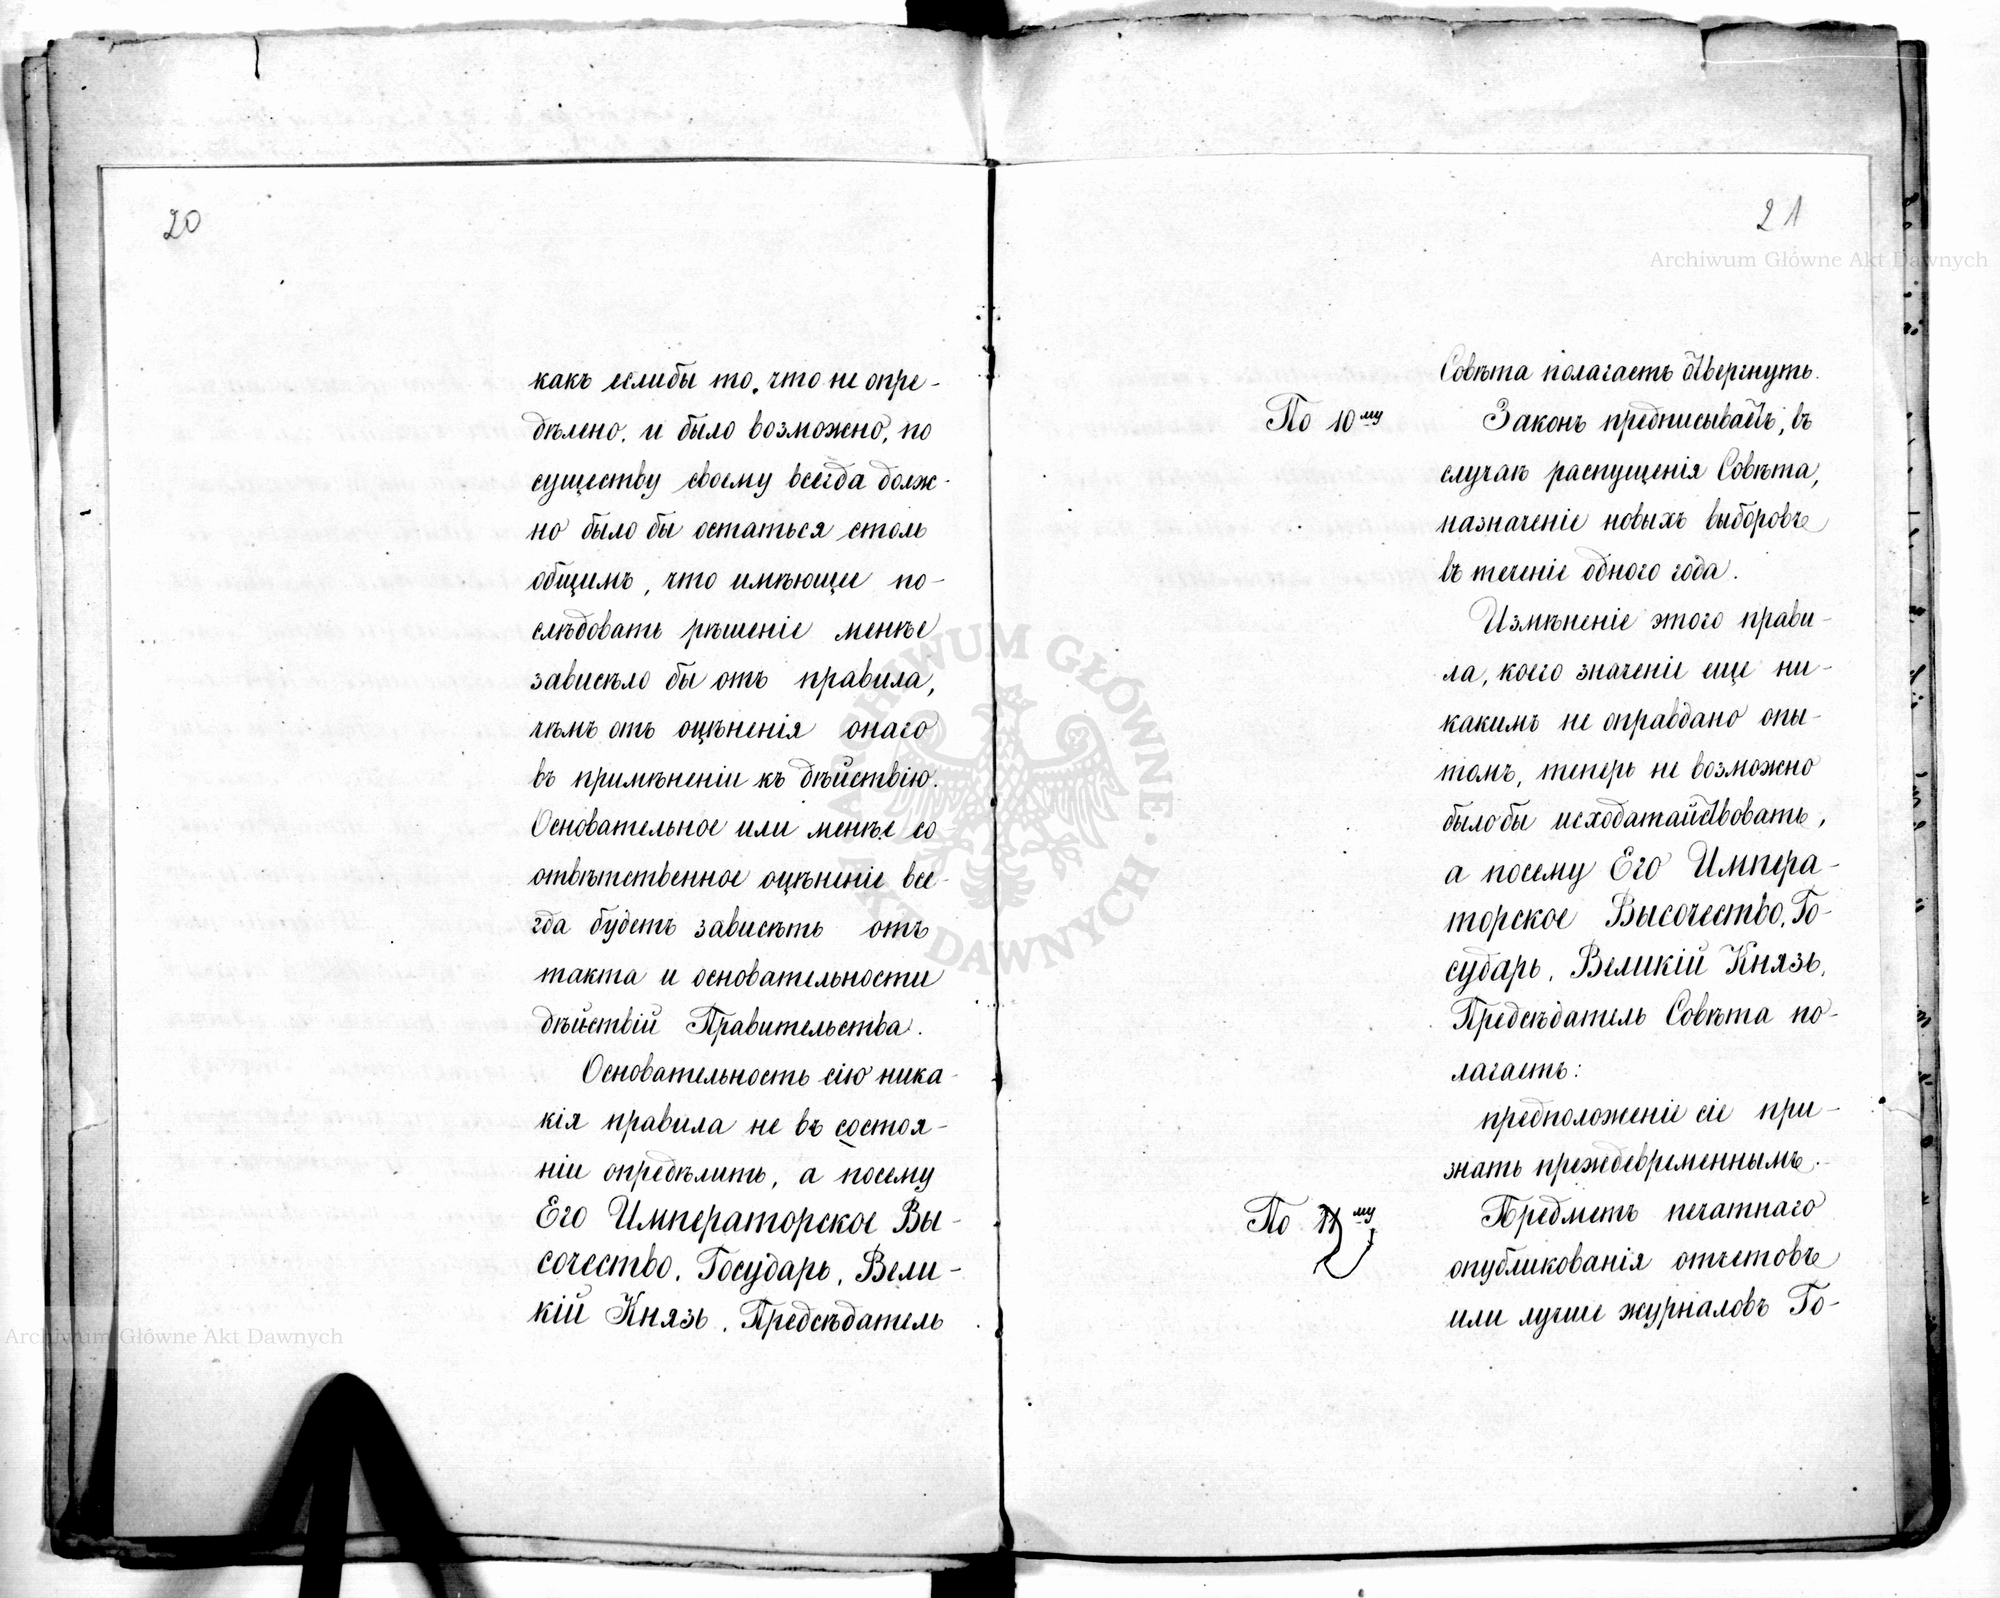 20
какъ еслибы то, что не опре-
дѣлено, и было возможно, по
существу своему всегда долж-
но было бы остаться столь
общимъ, что имѣющее по-
слѣдовать рѣшеніе менѣе
зависѣло бы отъ правила,
чѣмъ отъ оцѣненія онаго
въ примѣненіи къ дѣйствію.
Основательное или менѣе со-
отвѣтственное оцѣненіе все-
гда будетъ зависѣть отъ
такта и основательности
дѣйствій Правительства.
Основательность сію ника-
кія правила не въ состоя-
ніи опредѣлить, а посему
Его Императорское Вы-
сочество, Государь, Вели-
кій Князь, Предсѣдатель
21
Совѣта полагаетъ отвергнуть.
По 10му
Законъ предписываетъ, въ
случаѣ распущенія Совѣта,
назначеніе новыхъ выборовъ
въ теченіе одного года.
Измѣненіе этого прави-
ла, коего значеніе еще ни-
какимъ не оправдано опы-
томъ, теперь не возможно
было бы исходатайствовать,
а посему Его Импера-
торское Высочество, Го-
сударь, Великій Князь,
Предсѣдатель Совѣта по-
лагаетъ:
предположеніе сіе при-
знать преждевременнымъ.
По му
Предметъ печатнаго
опубликованія отчетовъ
или лучше журналовъ Го-
Archiwum Główne Akt Dawnych
Archiwum Główne Akt Dawnych
ARCHIWUM GŁÓWNE · AKT DAWNYCH ·